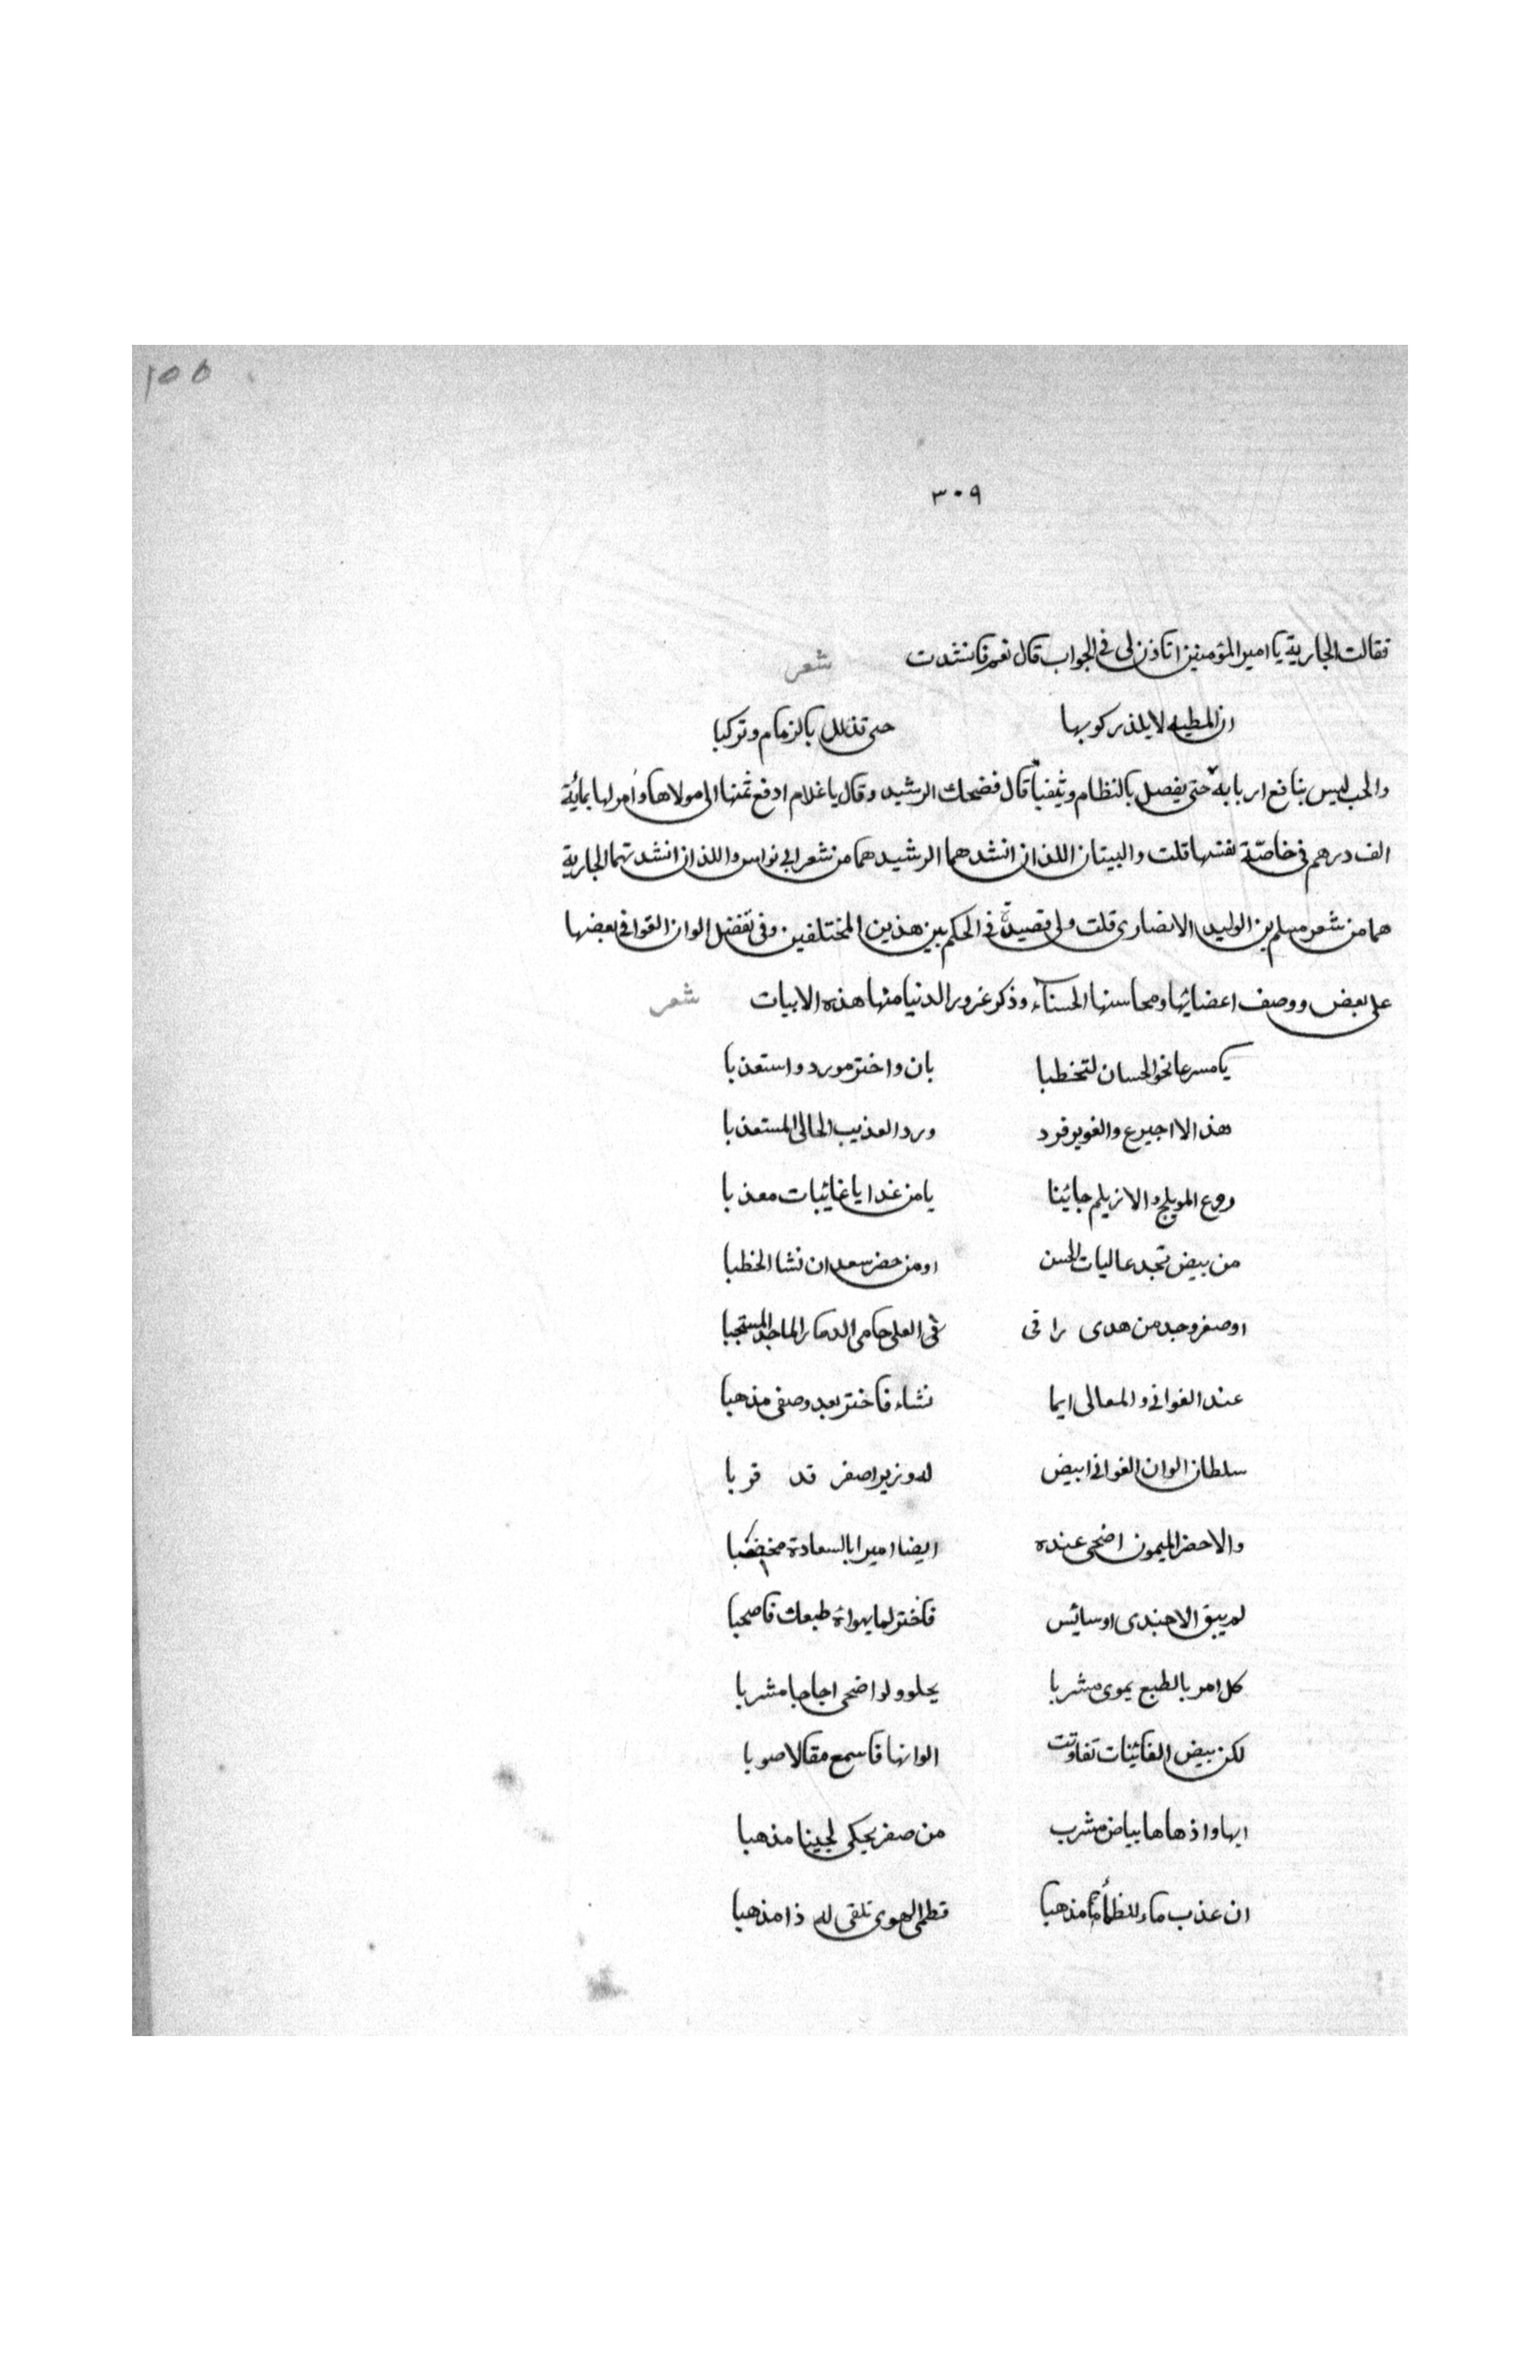 ١٥٥
٣٠٩
فقالت الجارية يا امير المؤمنين اتاذن لى فى الجواب قال نعم فانشدت شعر
ان المطيه لا يلذ ركوبها حتى تذلل بالزمام وتركبا
والحب ليس بنافع اربابه حتى يفصل بالنظام ويثقبا قال فضحك الرشيد وقال يا غلام ادفع ثمنها الى مولاها وامر لها بمائة
الف درهم فى خاصّة نفسها قلت والبيتان اللذان انشدهما الرشيد هما من شعر ابى نواس واللذان انشدتهما الجارية
هما من شعر مسلم بن الوليد الانصارى قلت ولى قصيدة فى الحكم بين هذين المختلفين وفى تفضل الوان الغوانى بعضها
على بعض ووصف اعضائها ومحاسنها الحسناء وذكر غرور الدنيا منها هذه الابيات شعر
يا مسرعا نحو الحسان لتخطبا بان واختر مورد واستعذبا
هذا الا اجيرع والغوير فرد ورد العذيب الحالى المستعذبا
ودع المويلح والازيلم جائنا يا من غدا يا غائبات معذبا
من بيض نجد عاليات الحسن او من خضر سعد ان نشا الخطبا
او صفر وجد من هدى راقى فى العلى حامى الدمار الماجد المستجبا
عند الغوانى والمعالى ايما نشاء فاختر بعد وصفى مذهبا
سلطان الوان الغوانى ابيض له وزير اصفر قد قربا
والاخضر الميمون اضحى عنده ايضا اميرا بالسعادة مخضبا
لم يبق الا جندى او سائس فاختر لما يهواه طبعك فاصحبا
كل امر بالطبع يهوى مشربا يحلو ولو اضحى اجاجا مشربا
لكن بيض الغانيات تفاوتت الوانها فاسمع مقالا صوبا
ابها واذهاها بياض مشرب من صفر يحكى لجينا مذهبا
ان عذب ماء للظمأ مذهبا فظمى الهوى تلقى له ذا مذهبا